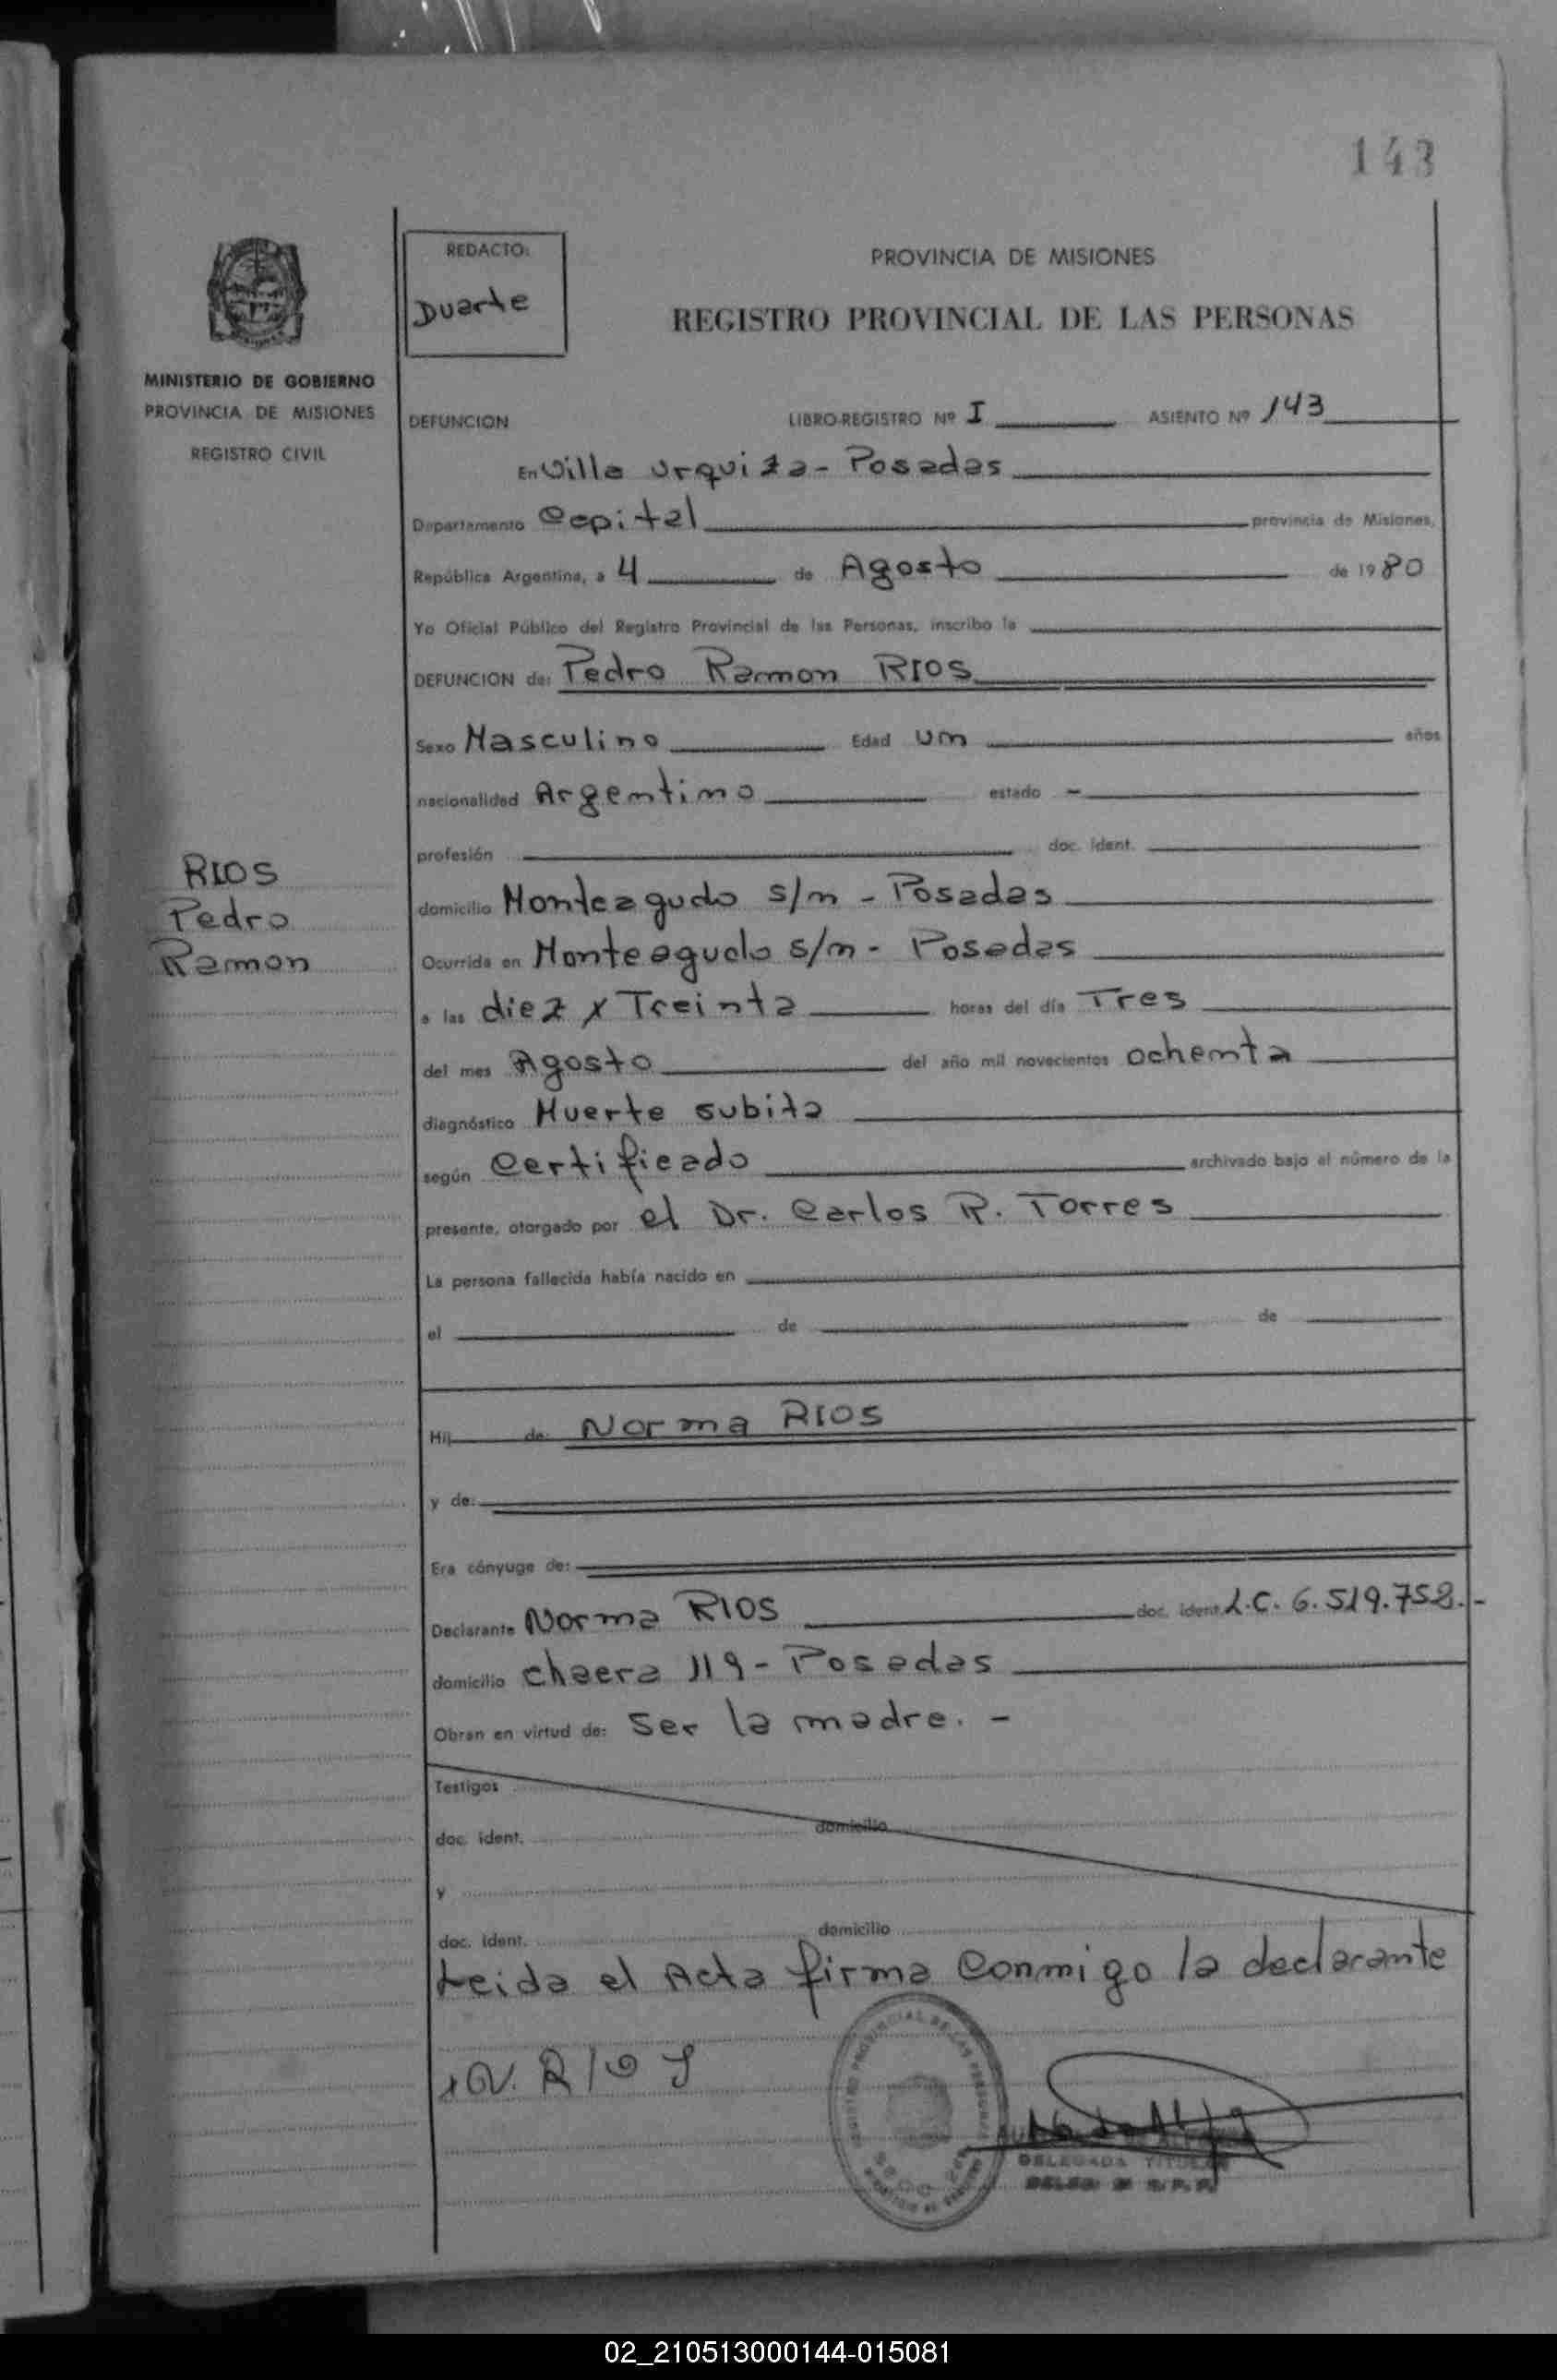 143
REDACTO:
Duarte
PROVINCIA DE MISIONES
REGISTRO PROVINCIAL DE LAS PERSONAS
MINISTERIO DE GOBIERNO
PROVINCIA DE MISIONES
REGISTRO CIVIL
DEFUNCION LIBRO-REGISTRO Nº I ASIENTO Nº 143
En Villa Urquiza - Posadas
Departamento Capital provincia de Misiones,
República Argentina, a 4 de Agosto de 1980
Yo Oficial Público del Registro Provincial de las Personas, inscribo la
DEFUNCION de: Pedro Ramon RIOS
Sexo Masculino Edad un años
nacionalidad Argentino estado -
profesión doc. ident.
RIOS
Pedro
Ramon
domicilio Monteagudo s/n - Posadas
Ocurrida en Monteagudo s/n - Posadas
a las diez y Treinta horas del día Tres
del mes Agosto del año mil novecientos ochenta
diagnóstico Muerte subita
según Certificado archivado bajo el número de la
presente, otorgado por el Dr. Carlos R. Torres
La persona fallecida había nacido en
el de de
Hij de: Norma RIOS
y de:
Era cónyuge de:
Declarante Norma RIOS doc. ident. L.C. 6.519.752.-
domicilio chacra 119 - Posadas
Obran en virtud de: Ser la madre. -
Testigos
doc. ident. domicilio
y
doc. ident. domicilio
Leida el Acta firma conmigo la declarante
N. RIOS
REGISTRO PROVINCIAL DE LAS PERSONAS
DELEGADA TITULAR